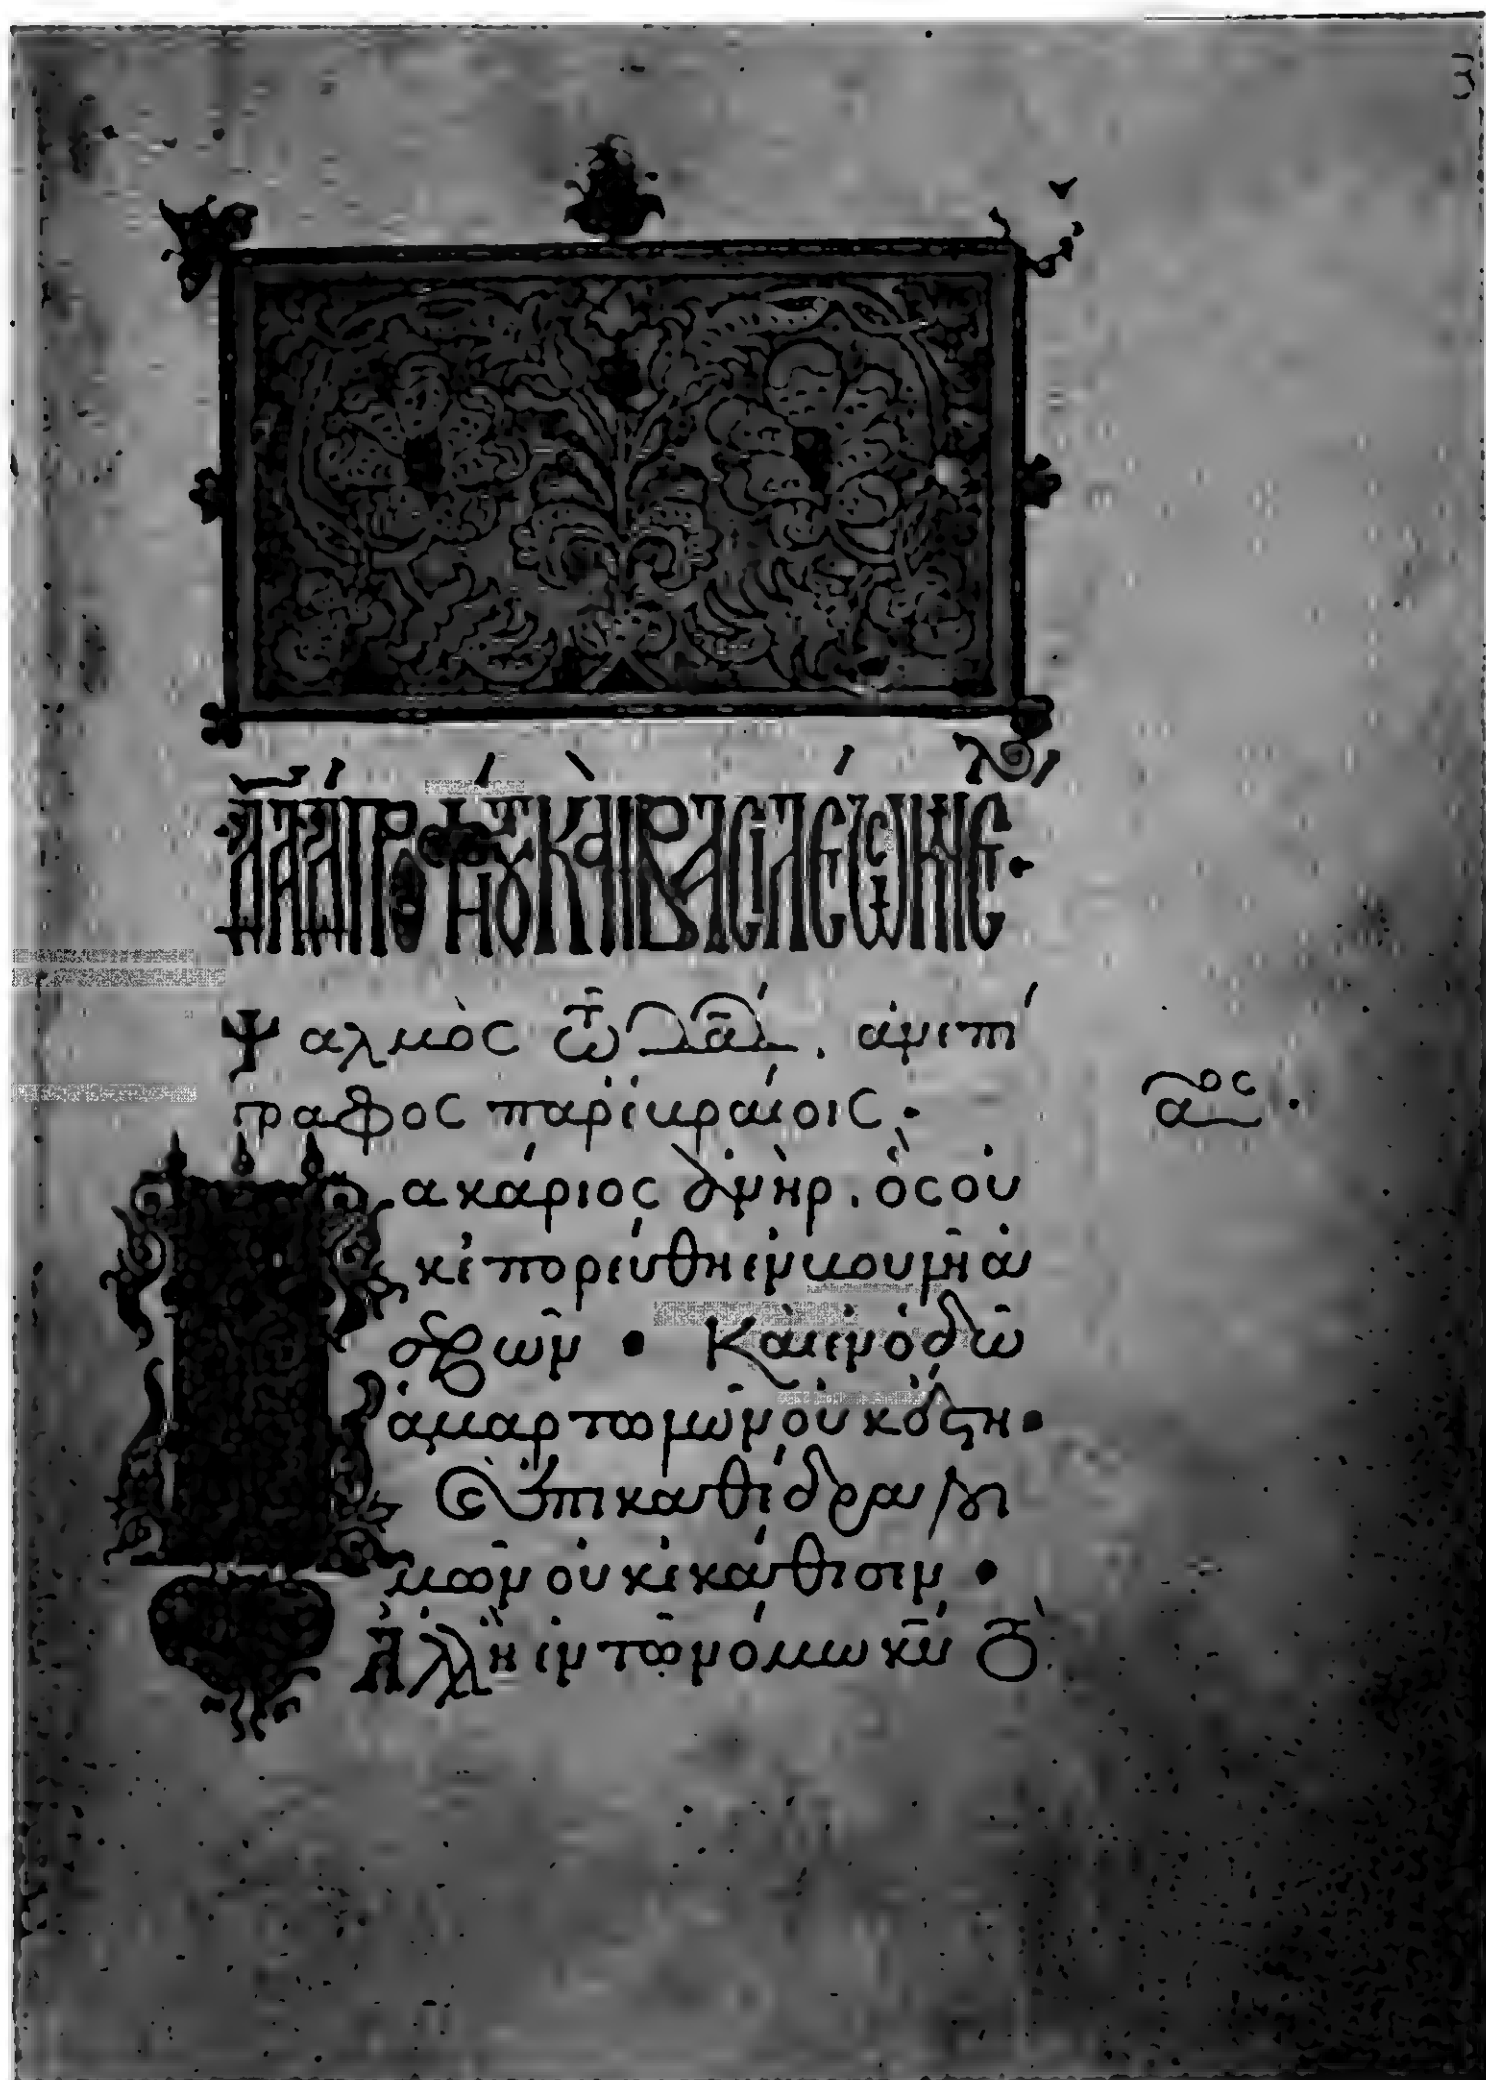 ΔΑΔ ΠΡΟΦΗΤΟΥ ΚΑΙ ΒΑΣΙΛΕΩΣ
Ψαλμὸς τῷ Δᾱδ. ἀνεπί
γραφος παρ' ἑβραίοις.
ακάριος ἀνὴρ, ὃς οὐ
κ ἐπορεύθη ἐν βουλῇ ἀ
αος
σεβῶν • Καὶ ἐν ὁδῷ
ἁμαρτωλῶν οὐκ ἔστη •
Ἐπὶ καθέδραν λοι
μῶν οὐκ ἐκάθισεν •
Ἀλλ' ἢ ἐν τῷ νόμω κυ̅ τὸ